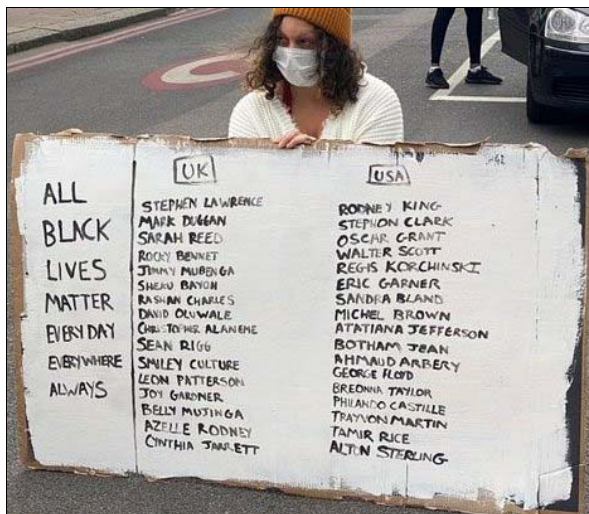 ALL
BLACK
LIVES
MATTER
EVERYDAY
EVERYWHERE
ALWAYS
UK
STEPHEN LAWRENCE
MARK DUGGAN
SARAH REED
ROCKY BENNET
JIMMY MUBENGA
SHEKU BAYOH
RASHAN CHARLES
DAVID OLUWALE
CHRISTOPHER ALANEME
SEAN RIGG
SMILEY CULTURE
LEON PATTERSON
JOY GARDNER
BELLY MUJINGA
AZELLE RODNEY
CYNTHIA JARRETT
USA
RODNEY KING
STEPHON CLARK
OSCAR GRANT
WALTER SCOTT
REGIS KORCHINSKI
ERIC GARNER
SANDRA BLAND
MICHEL BROWN
ATATIANA JEFFERSON
BOTHAM JEAN
AHMAUD ARBERY
GEORGE FLOYD
BREONNA TAYLOR
PHILANDO CASTILLE
TRAYVON MARTIN
TAMIR RICE
ALTON STERLING